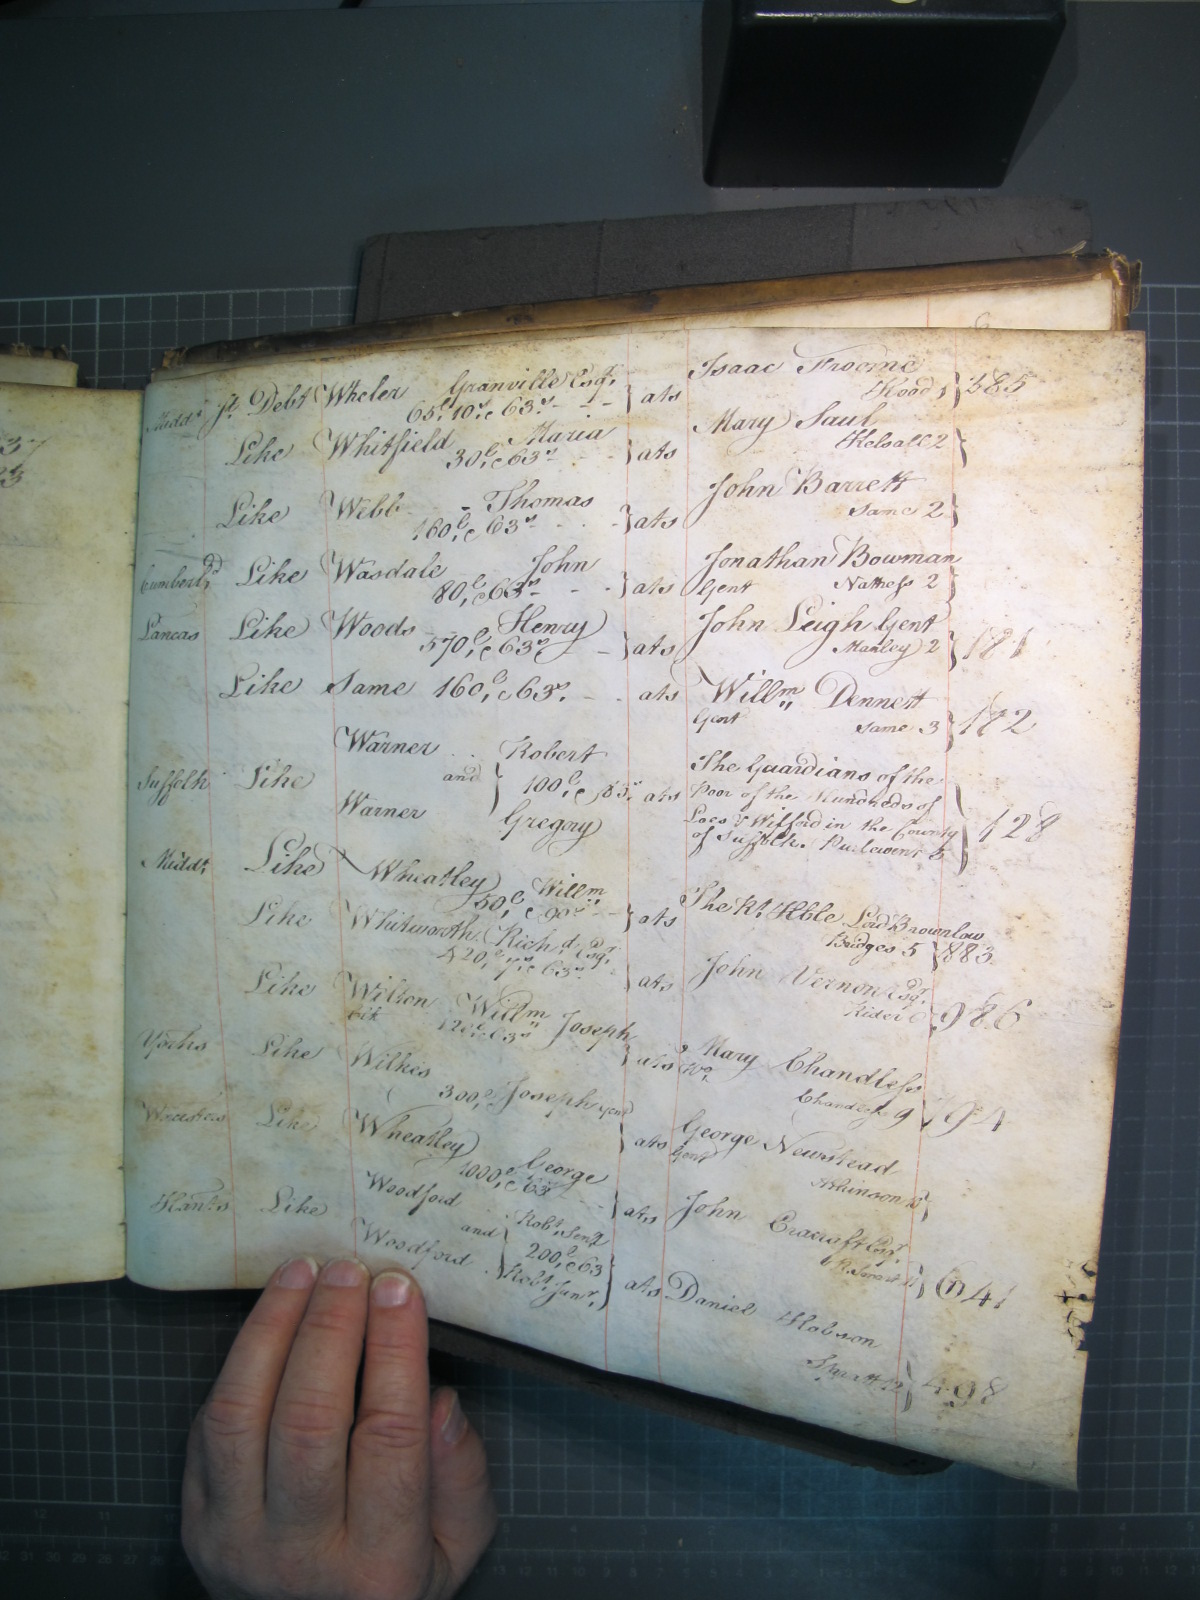 Midds Jt. Debt Wheler Granville Esqr. } ats Isaac Froome
65l.10s. & 63s. Hood 1 } 585
Like Whitfield Maria } ats Mary Saul
30l. & 63s. Kelsall 2 }
Like Webb Thomas } ats John Barrett
160l. & 63s. Same 2 }
Cumberld. Like Wasdale John } ats Jonathan Bowman
80l. & 63s. Gent Nathess 2 }
Lancas Like Woods Henry } ats John Leigh Gent
570l. & 63s. Manley 2 } 181
Like Same 160l. & 63s. ats Willm. Dennett
Gent Same 3 } 172
Warner Robert The Guardians of the
Suffolk Like and } 100l. & ats Poor of the Hundreds of
Warner Gregory Loes & Wilford in the County } 128
of Suffolk.
Midds. Like Wheatley Willm. } ats The Rt. Hble Lord Brownlow
50l. & 90s. Bridges 5 } 883
Like Whitworth Richd. Esqr. } ats John Vernon Esqr.
Rider } 986
Like Wilton Willm. Joseph } ats Mary Chandless
Wo. 9 } 794
Yorks Like Wilkes Joseph Gent } ats George Newstead
300l. Gent Atkinson }
Worcesters Like Wheatley George } ats John Cracraft Esqr.
1000l. & 63s } 641
Hants Like Woodford Robt. Senr
and } 200l. & 63 } ats Daniel Hobson
Woodford Robt. Junr. } 498